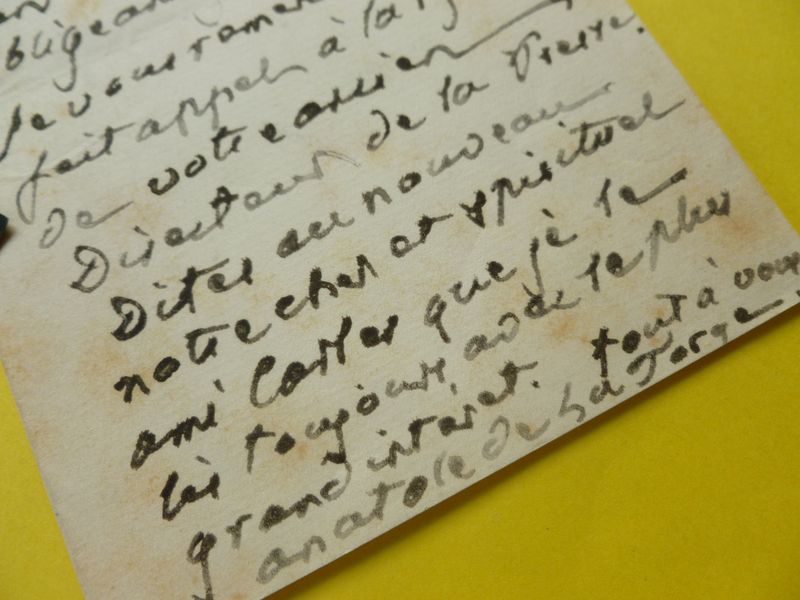 obligean
je vous remer
fait appel à la
de votre ancien
Directeur de la Presse.
Dites au nouveau
notre cher et spirituel
ami Carles que je le
lis toujours avec le plus
grand intéret. tout à vous
anatole de La Forge